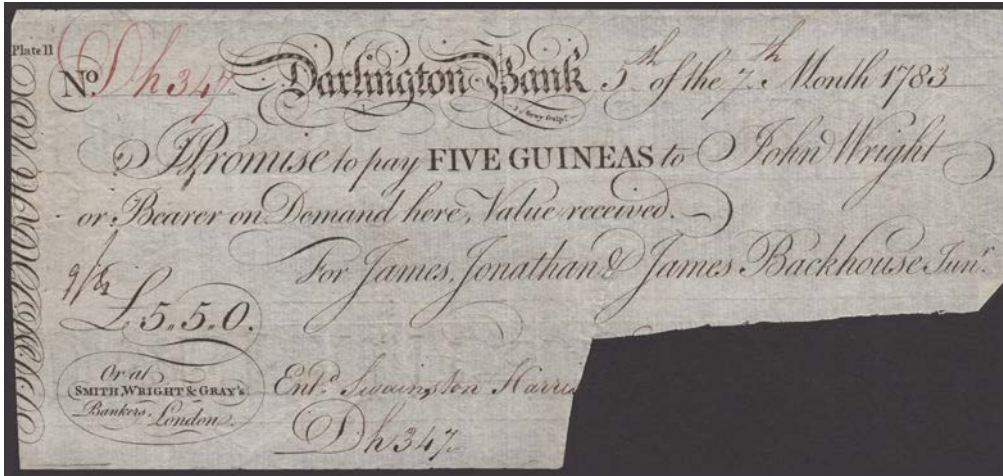 Plate 11
No. Dh347. Darlington Bank 5th of the 7th Month 1783
I Promise to pay FIVE GUINEAS to John Wright
or Bearer on Demand here, Value received.
For James, Jonathan & James Backhouse Junr.
£5.. 5.. 0.
Or at
SMITH, WRIGHT & GRAY's
Bankers, London.
Entd. Swainston
Dh347.